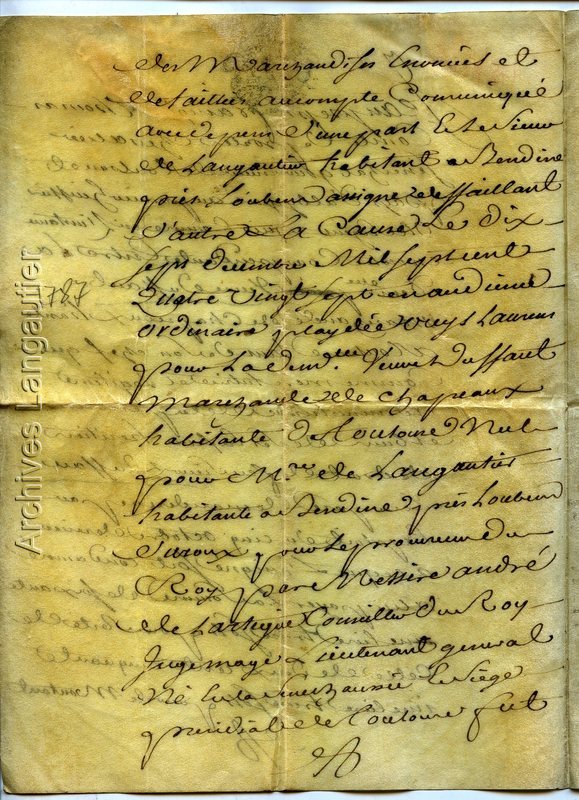 des Marchandises Enoncées et
detaillées au compte Communiqué
avec depens d'une part Et le Sieur
de Langautier habitant a Bendine
près Loubens assigné & deffaillant
d'autre La Cause Le Dix
sept decembre Mil sept cent
Quatre Vingt sept en audience
ordinaire playdée ouys Laurens
pour La dem.lle Veuve
Marchande de Chapeaux
habitante de Toulouse Nul
pour Mr. de Langautier
habitant a Bendine près Loubens
pour Le procureur du
Roy, pare Messire andré
de Lartigue Conseiller du Roy
Juge mage Lieutenant general
Né En la Senechaussée & Siège
presidial de Toulouse fut
1787
Archives Langautier